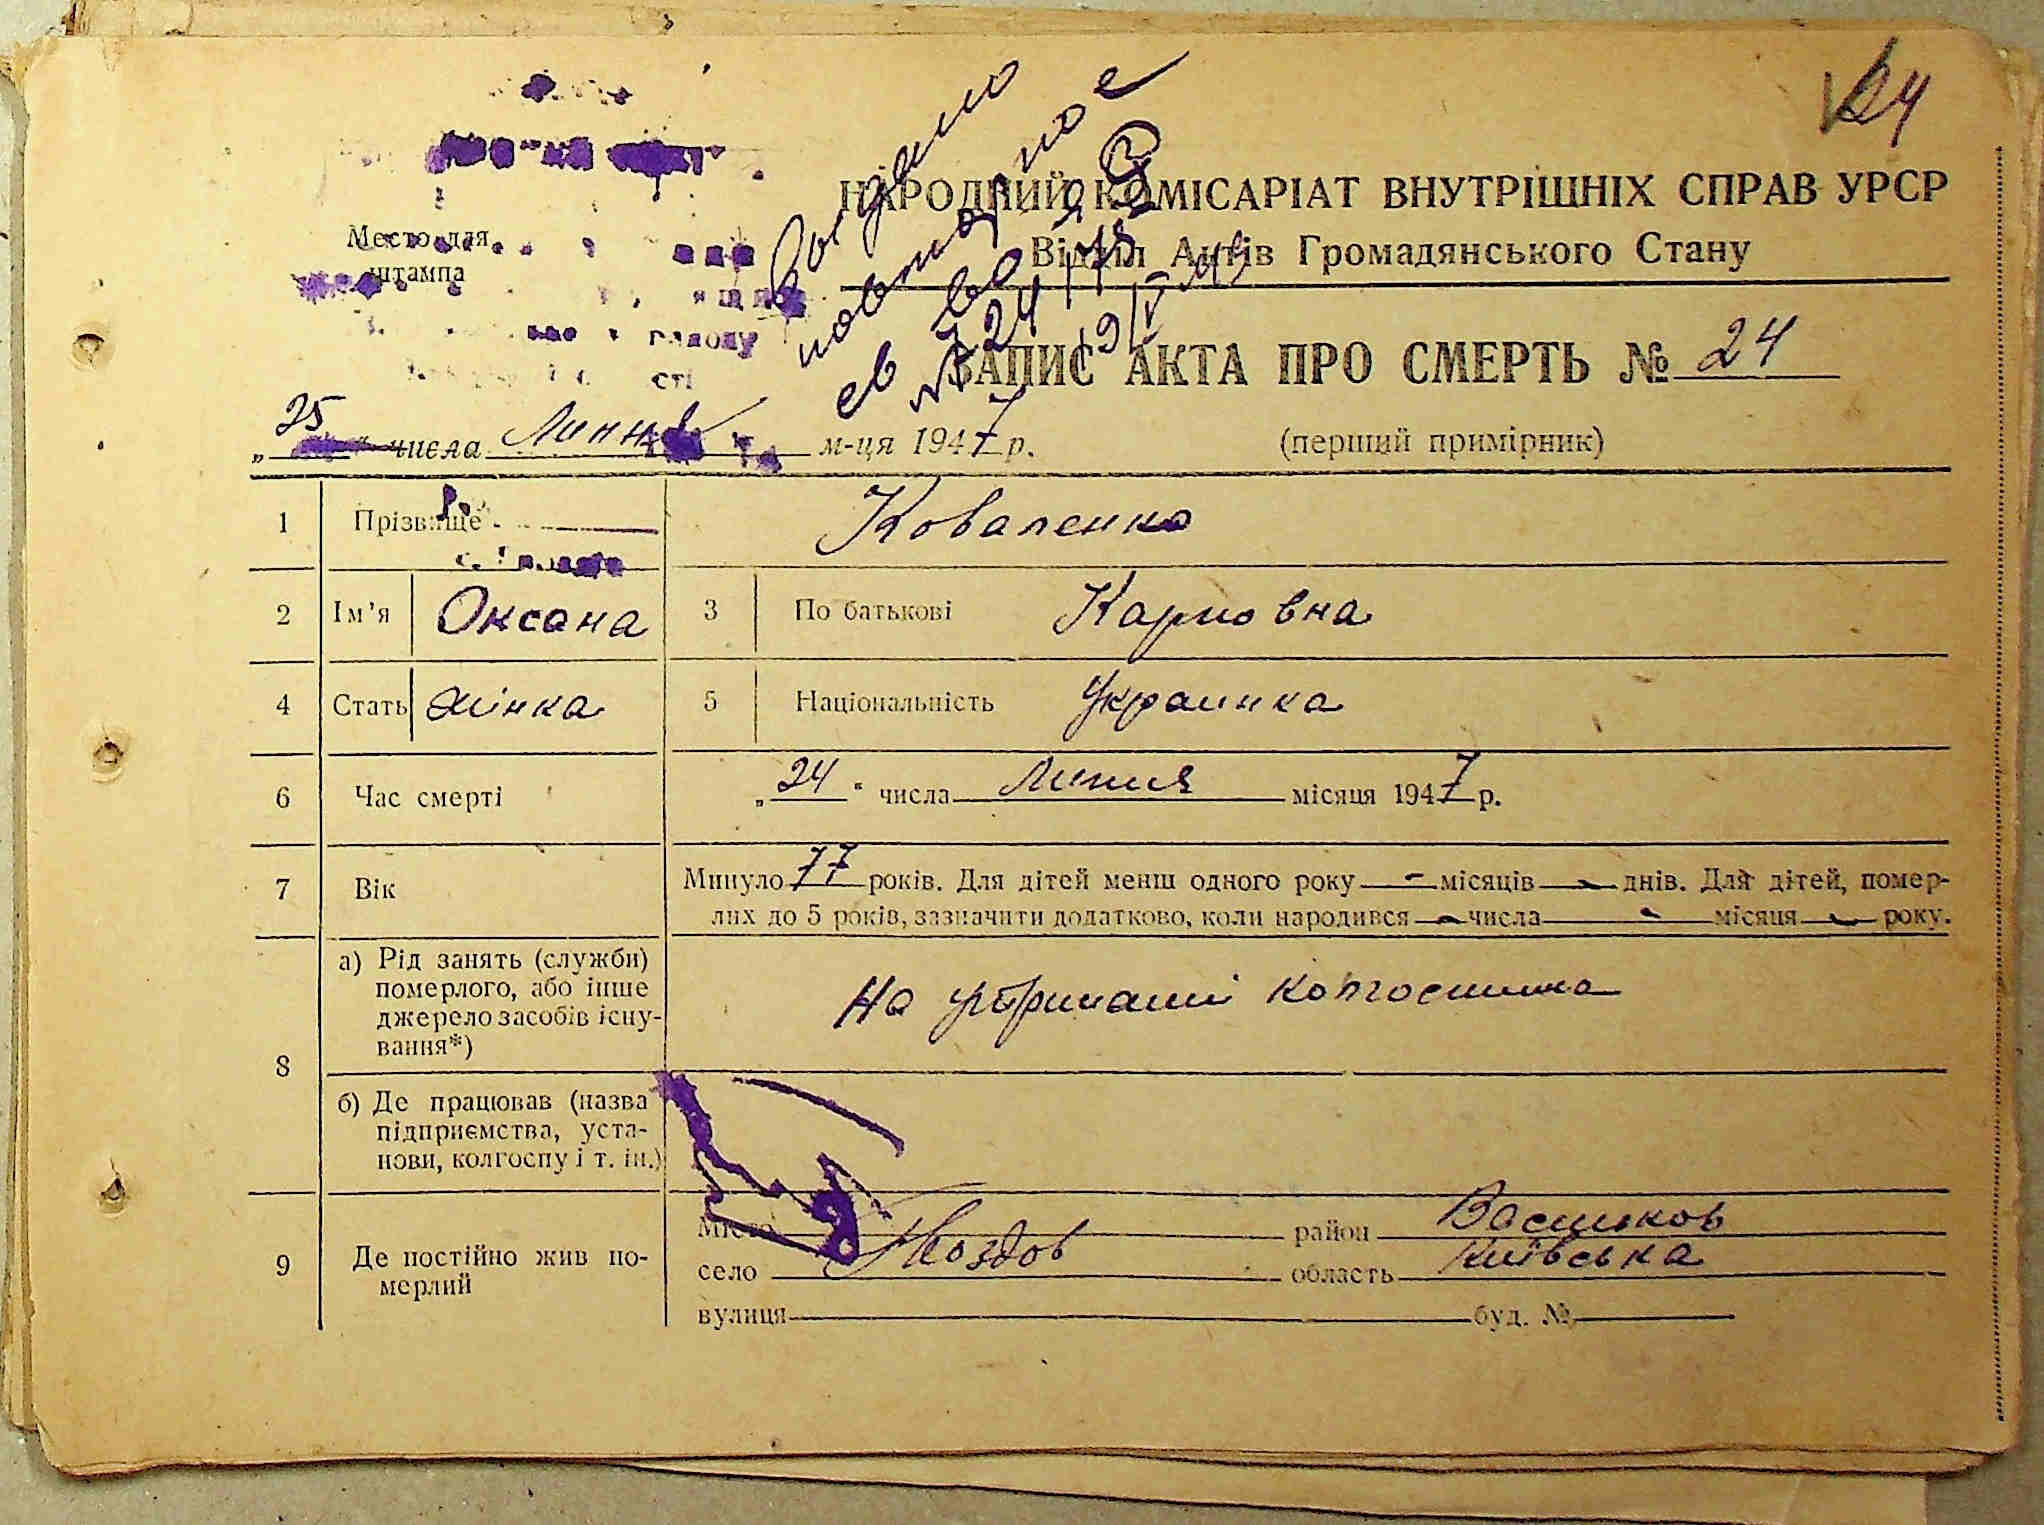 24
НАРОДНИЙ КОМІСАРІАТ ВНУТРІШНІХ СПРАВ УРСР
Место для
штампа
Відділ Актів Громадянського Стану
Выдано
повторное
св во
№ 24
ЗАПИС АКТА ПРО СМЕРТЬ № 24
„25" числа Липня м-ця 1947 р. (перший примірник)
1 Прізвище Коваленко
2 Ім'я Оксана 3 По батькові Карповна
4 Стать жінка 5 Національність Украинка
6 Час смерті „24" числа Липня місяця 1947 р.
7 Вік Минуло 77 років. Для дітей менш одного року - місяців - днів. Для дітей, помер-
лих до 5 років, зазначити додатково, коли народився - числа - місяця - року.
8 а) Рід занять (служби)
померлого, або інше
джерело засобів існу-
вання*)
На утриманні колгоспника
б) Де працював (назва
підприємства, уста-
нови, колгоспу і т. ін.)
9 Де постійно жив по-
мерлий
Місто район Васильков
село Гвоздов область Київська
вулиця буд. №